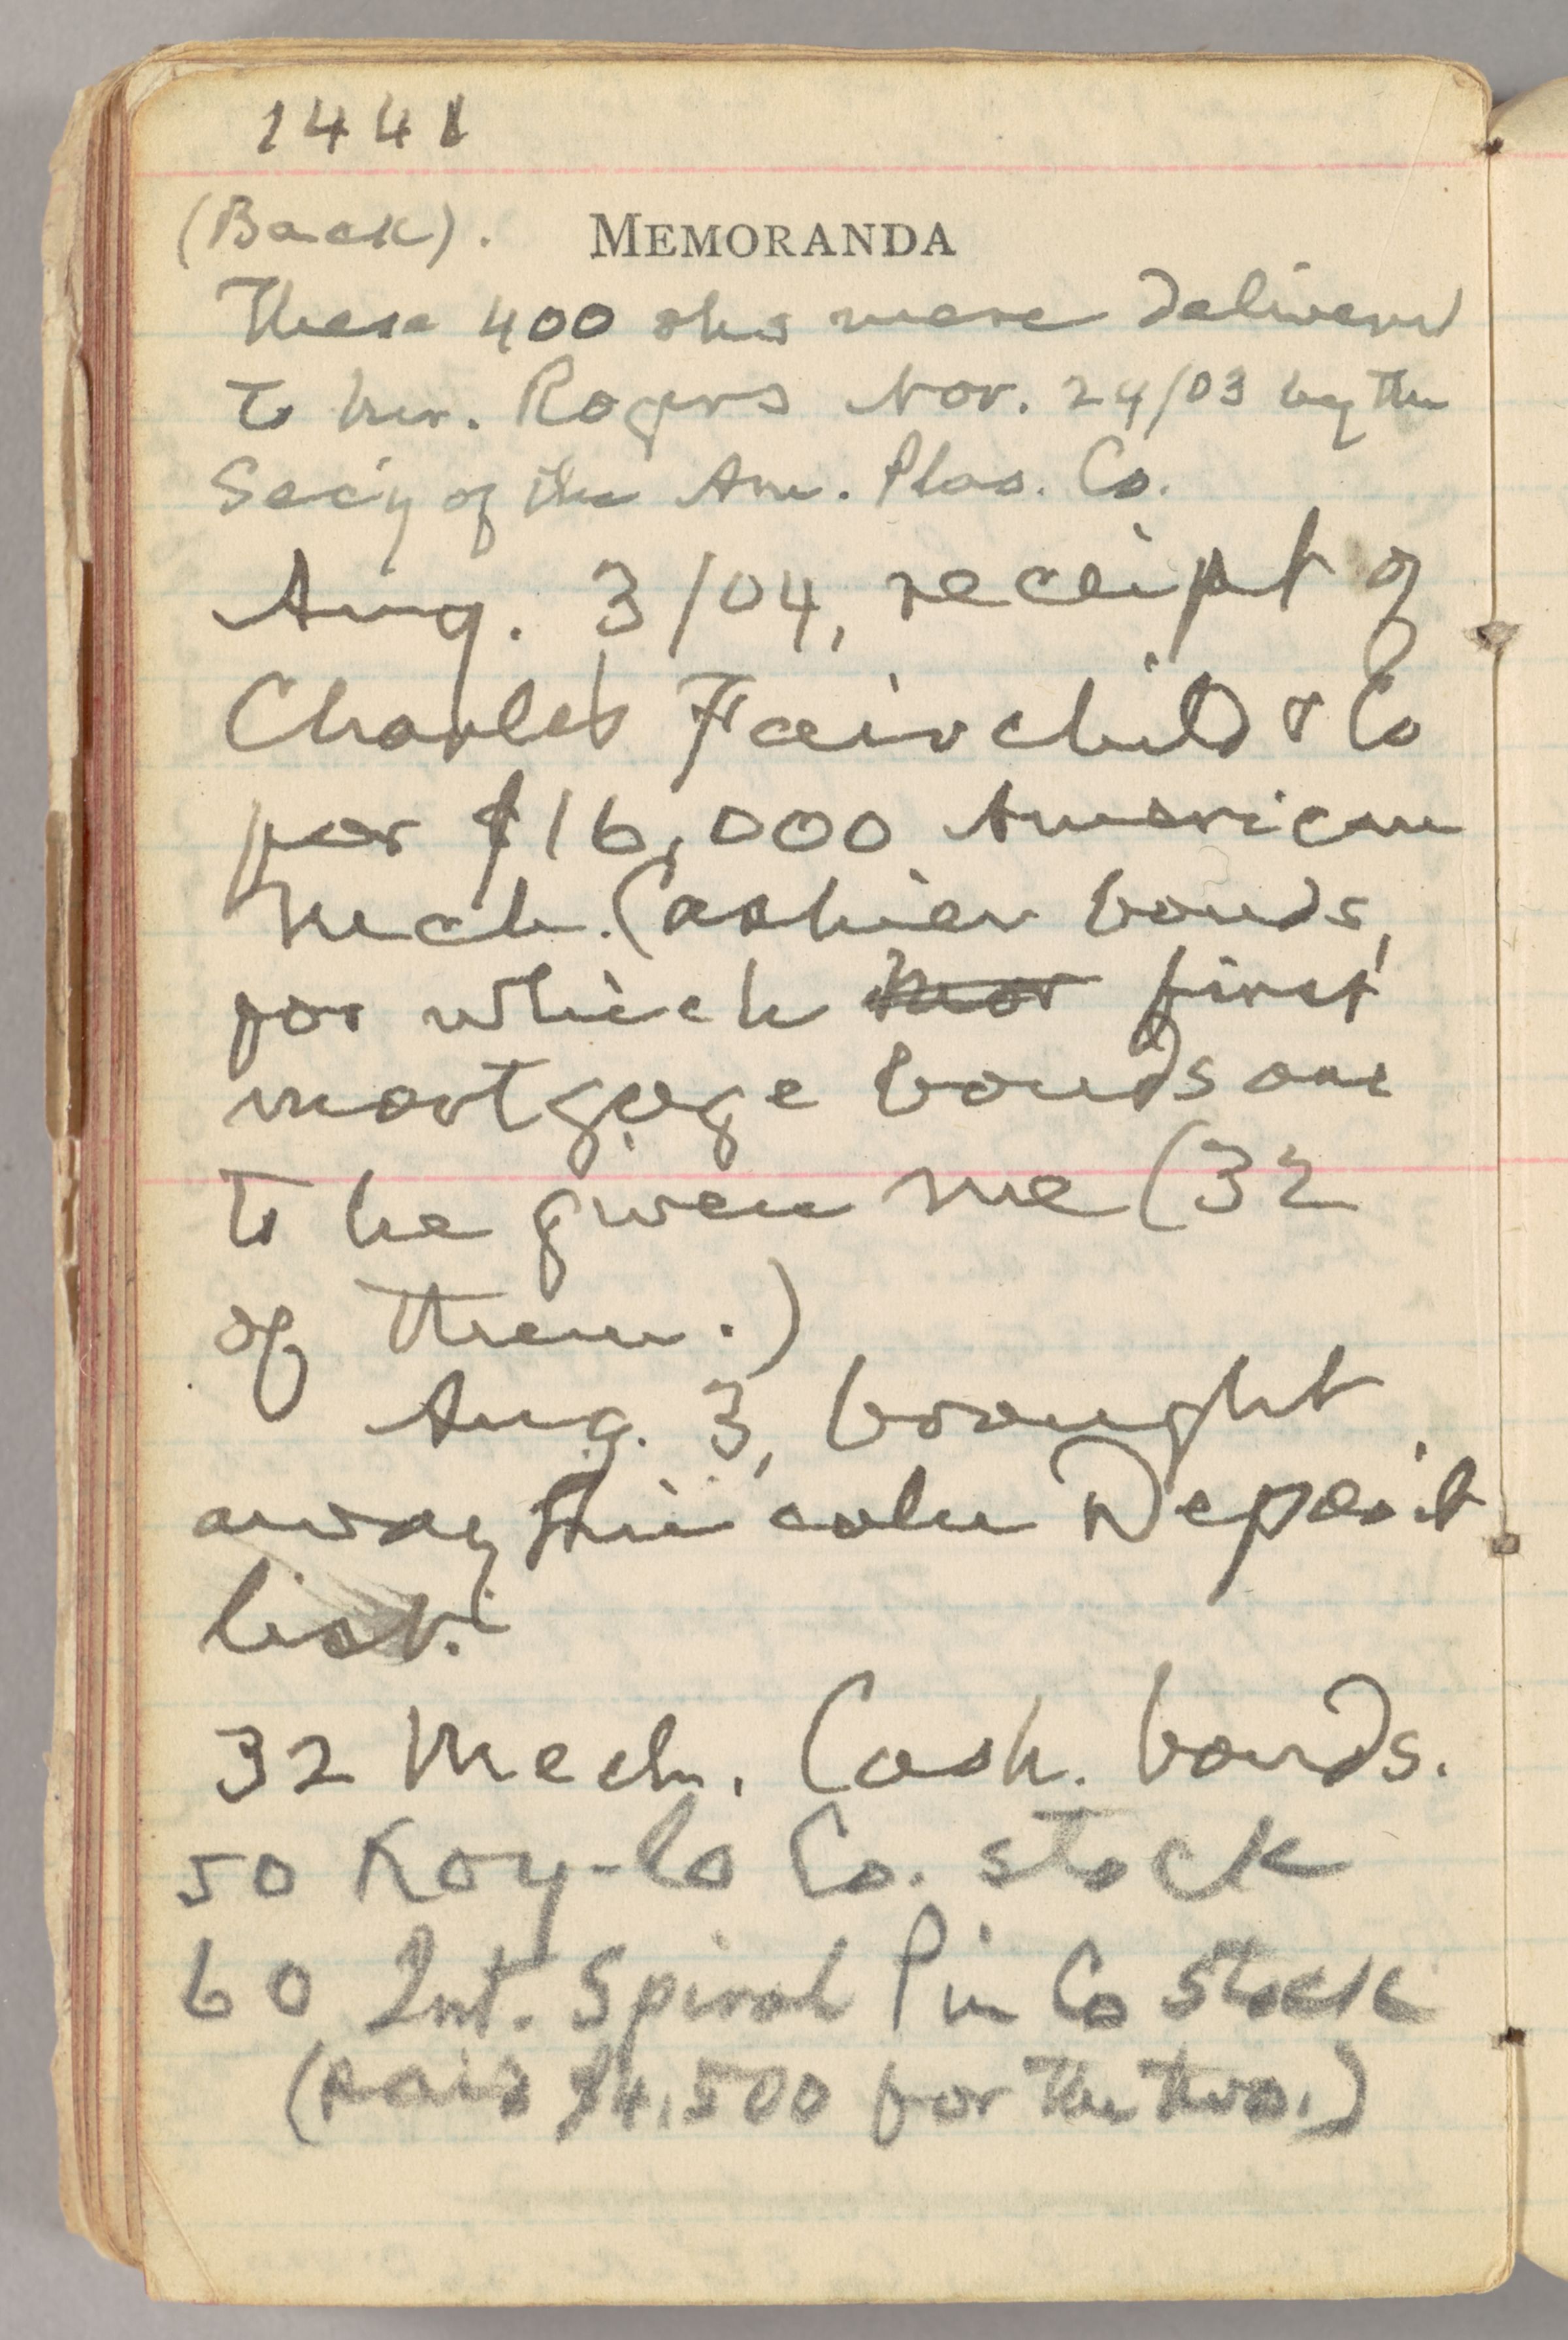 1441
(Back). MEMORANDA
These 400 shs were delivered
to Mr. Rogers Nov. 24/03 by the
Sec'y of the Am. Plas. Co.
Aug. 3/04, receipt of
Charles Fairchild & Co
for $16,000 American
Mech. Cashier bonds,
for which mor first
mortgage bonds are
to be given me (32
of them.)
Aug. 3, brought
away from Deposit
list.
32 Mech. Cash. bonds.
50 Koy-lo Co. stock
60 Int. Spiral Pin Co stock
(paid $4,500 for the two.)